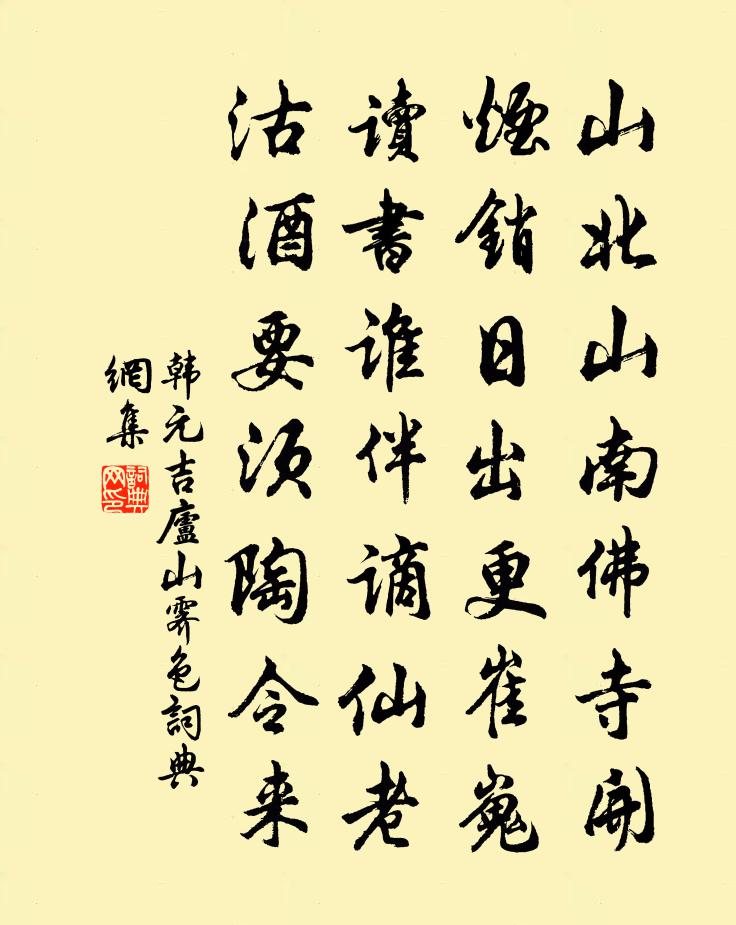 山北山南佛寺開
煙銷日出更崔嵬
讀書誰伴謫仙老
沽酒要須陶令来
韩元吉廬山霽色詞典
網集
詞典
网印